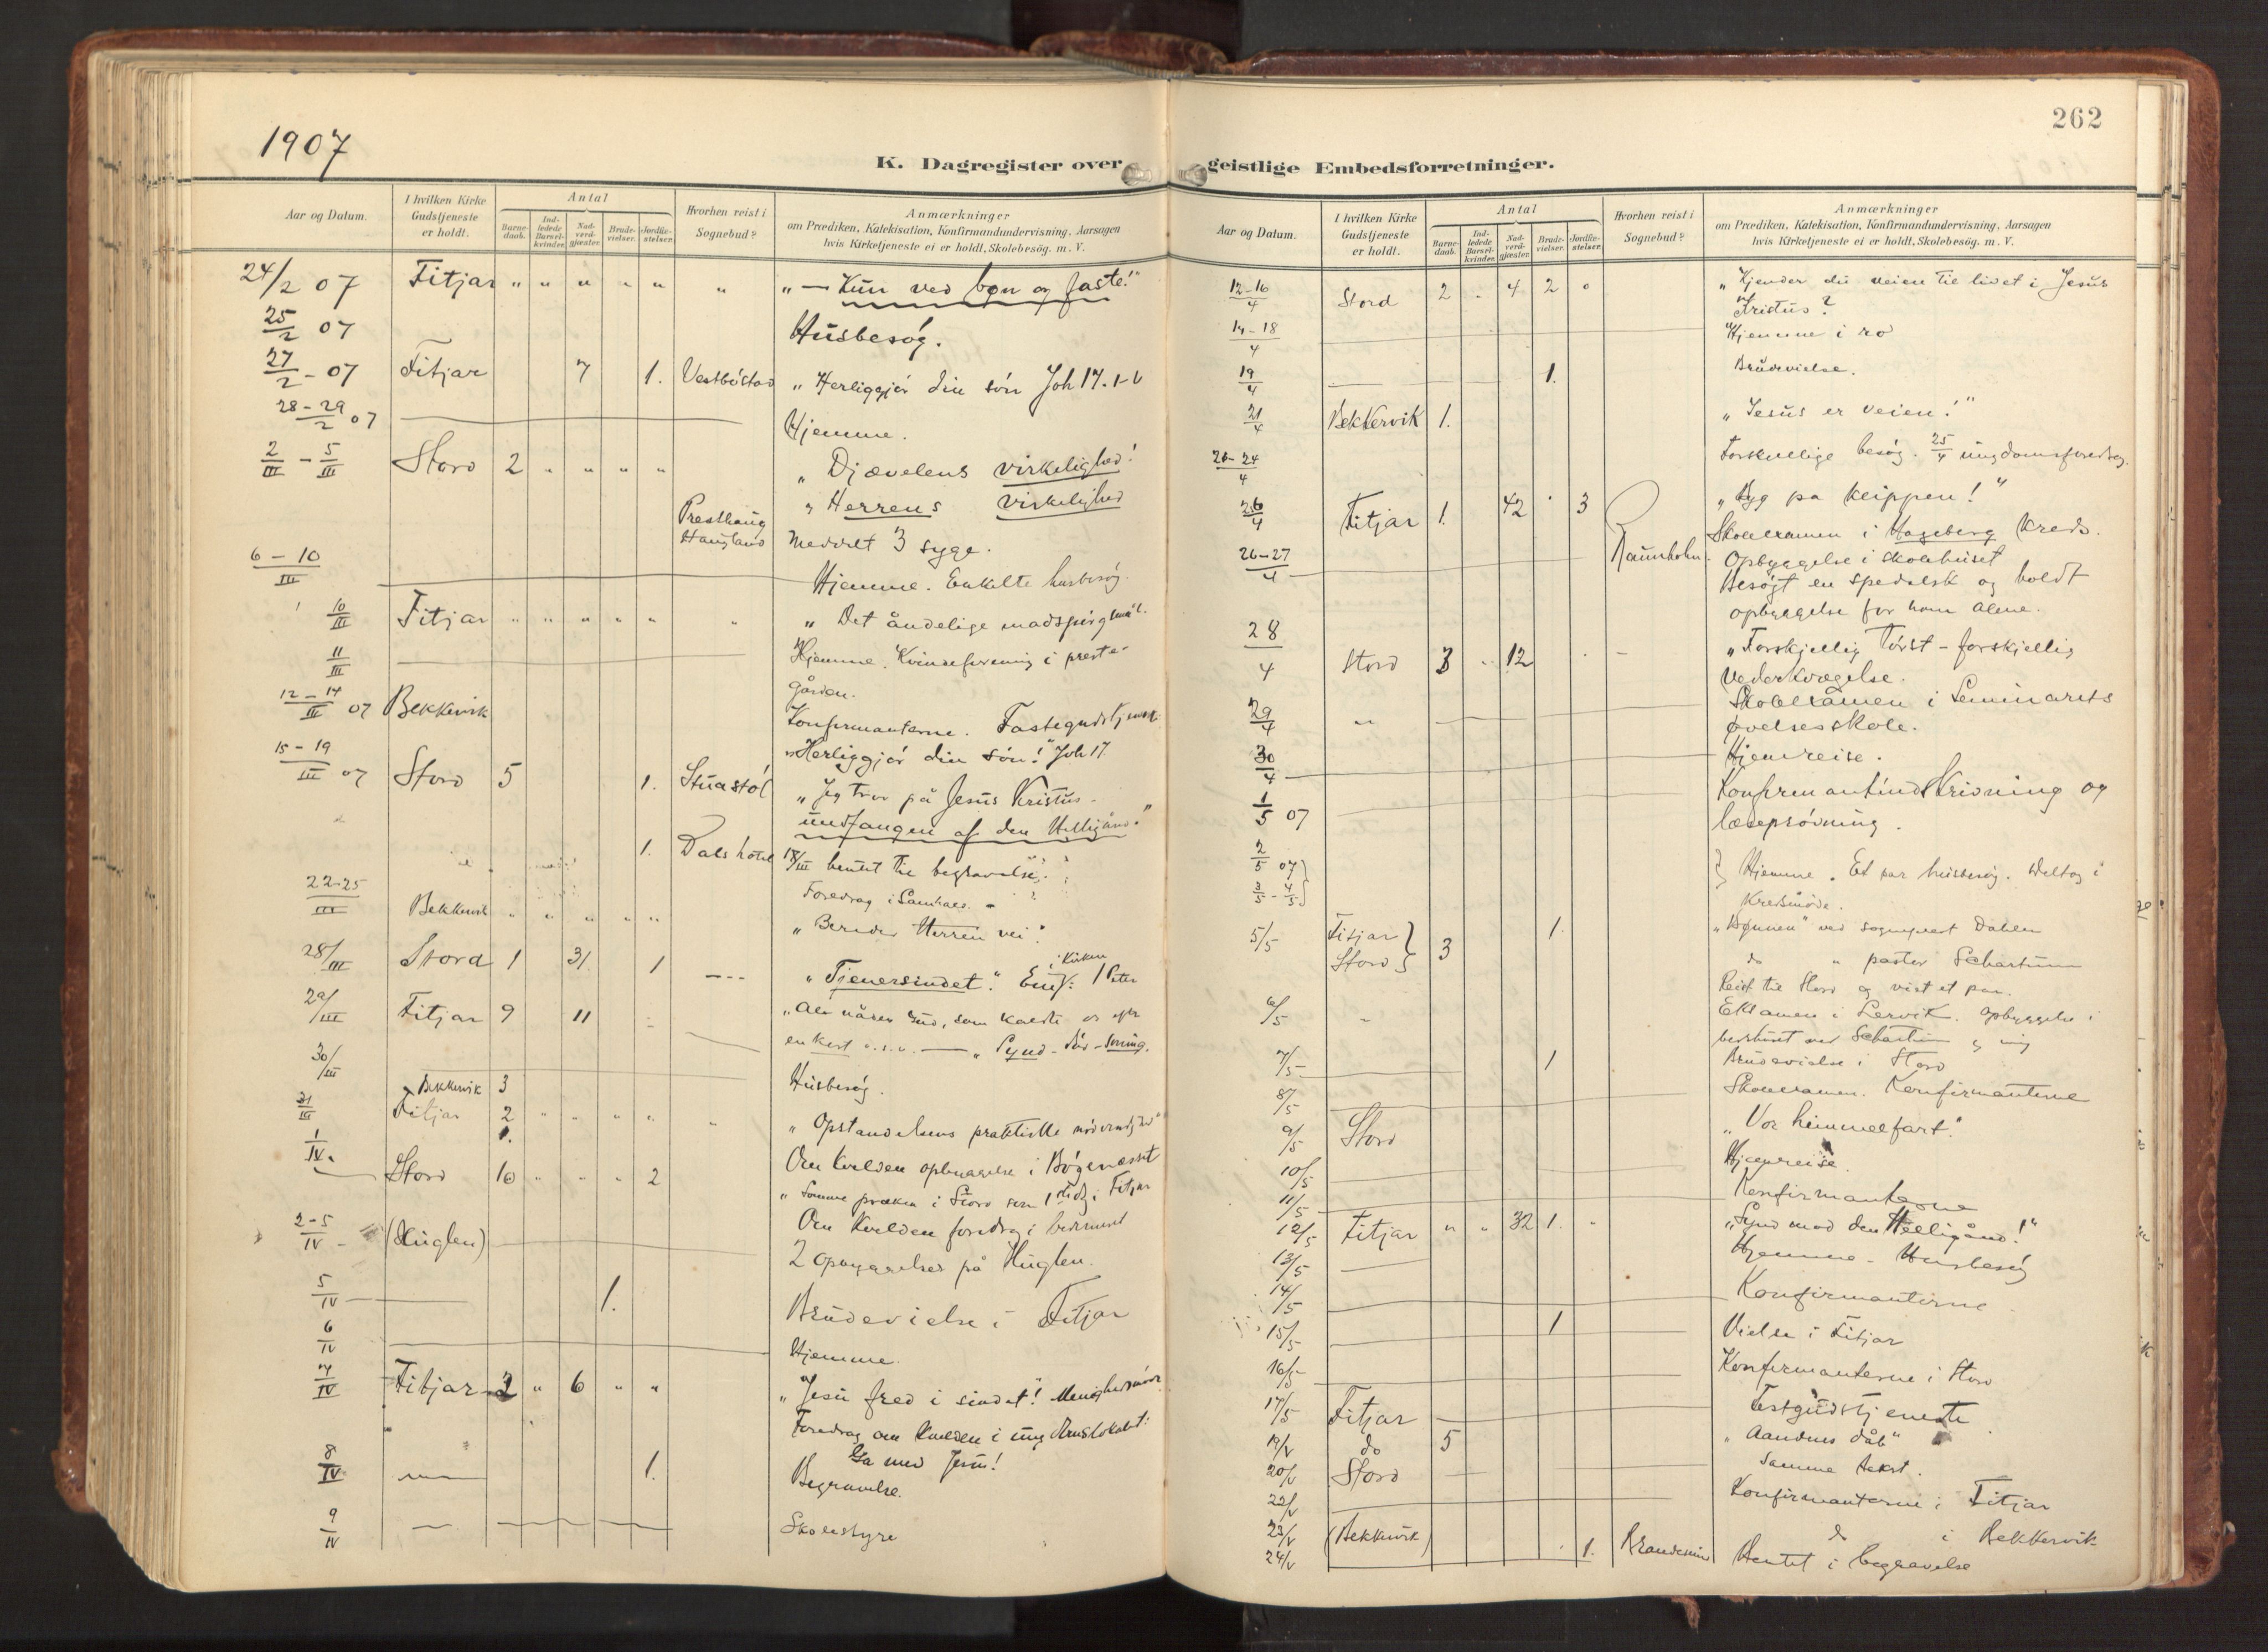 1907
262
K. Dagregister over
geistlige Embedsforretninger.
Aar og Datum.
I hvilken Kirke Gudstjeneste er holdt.
Antal
Barne-daab.
Ind-ledede Barsel-kvinder.
Nad-verd-gjæster.
Brude-vielser.
Jordfæ-stelser.
Hvorhen reist i Sognebud?
Anmærkninger
om Prædiken, Katekisation, Konfirmandundervisning, Aarsagen
hvis Kirketjeneste ei er holdt, Skolebesög. m. V.
24/2 07 Fitjar " " " " " " "— Kun ved bøn og faste!"
25/2 07 Husbesøg.
27/2 - 07 Fitjar 7 1. Vestbøstad " Herliggjør din søn Joh 17.
28-29/2 07 Hjemme.
2/III - 5/III Stord 2 " " " " " Djævelens virkelighed!
" Herrens virkelighed
Presthaug
Haugland meddelt 3 syge.
6-10/III Hjemme. Enkelte husbesøg.
10/III Fitjar " " " " " " " Det åndelige madspørgsmål.
11/III Hjemme. Kvindeforening i preste-
gården.
12-14/III 07 Bekkervik Konfirmanterne. Fastegudstjeneste
" Herliggjør din søn!" Joh 17
15-19/III 07 Stord 5 1. Stuastøl " Jeg tror på Jesus Kristus -
undfangen af den Helligånd."
1. Dals hotel 18/III hentet til begravelse.
Foredrag i
22-25/III Bekkervik " " " " " " Bereder Herren vei".
28/III Stord 1 31. 1 --- " Tjenersindet". i Kirken 1 Peter
29/III Fitjar 9 11 " Al nådes Gud, som kaldte os
o.s.v. — " Synd - død - soning.
30/III Husbesøg
Bekkervik 3
31/III Fitjar 2 " " " " " " Opstandelsens praktiske nødvendighed"
1.
1/IV. Om kvelden opbyggelse i
Stord 10 " " " 2 " Samme præken i Stord som 1ste dag i Fitjar
Om kvelden foredrag i bedehuset
2-5/IV - (Huglen) 2 opbyggelser på Huglen.
5/IV — 1. Brudevielse i Fitjar
6/IV Hjemme.
7/IV Fitjar 2 " 6 " " " Jesu fred i sindet"! Menighedsmøde
Foredrag om kvelden i ungdomslokalet:
Ga med Jesus!
8/IV 1. Begravelse.
9/IV — Skolestyre
Aar og Datum.
I hvilken Kirke Gudstjeneste er holdt.
Antal
Barne-daab.
Ind-ledede Barsel-kvinder.
Nad-verd-gjæster.
Brude-vielser.
Jordfæ-stelser.
Hvorhen reist i Sognebud?
Anmærkninger
om Prædiken, Katekisation, Konfirmandundervisning, Aarsagen
hvis Kirketjeneste ei er holdt, Skolebesög. m. V.
12-16/4 Stord 2 " 4 2 " " Kjender du veien til livet i Jesus
Kristus?
14-18/4 Hjemme i ro
19/4 — 1. Brudevielse.
21/4 Bekkervik 1. " Jesus er veien!"
20-24/4 Forskjellige besøg. 25/4 ungdomsforedrag.
26/4 Fitjar 1. 42 " 3 " Byg på klippen!"
Skoleexamen i Hageberg kreds.
26-27/4 Raunholm. Opbyggelse i skolehuset
Besøgt en spedalsk og holdt
opbyggelse for ham alene.
28/4 Stord 3 " 12 " - " Forskjellig tørst - forskjellig
vederkvægelse.
29/4 " Skoleexamen i Seminarets
øvelsesskole.
30/4 — Hjemreise.
1/5 07 Konfirmantindskrivning og
læseprøvning.
2/5 07
3/5 - 4/5 } Hjemme. Et par husbesøg. Deltog i
Kredsmøde.
5/5 Fitjar
Stord } 3 1. "Bønnen" ved sogneprest Dahlen
do " pastor Schartum
Reist til Stord og viet et par.
6/5 " Eksamen i Lervik. Opbyggelse i
bedehuset ved Schartum og mig
7/5 — 1 Brudevielse i Stord
8/5 Skoleexamen. Konfirmanterne
9/5 Stord " Vor himmelfart".
10/5 Hjemreise.
11/5 — Konfirmanterne
12/5 Fitjar " " 32 1. " " Synd mod den Helligånd!"
13/5 — Hjemme - Husbesøg
14/5 Konfirmanterne
15/5 1 Vielse i Fitjar
16/5 Konfirmanterne i Stord
17/5 Fitjar — Festgudstjeneste
19/V do 5 " Aandens dåb"
20/V Stord — Samme tekst.
22/V Konfirmanterne i Fitjar
23/V (Bekkervik) do i Bekkervik
24/V 1. Hentet i begravelse